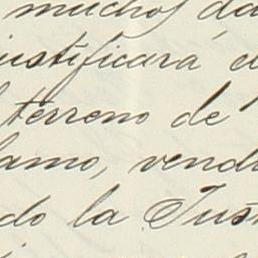 muchos da
justificará e
terreno de
lamo, vend
do la Jus